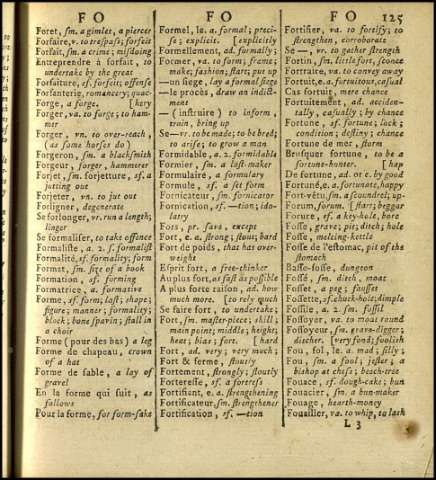 F O
Foret, sm. a gimlet, a piercer
Forfaire, v. to trespass; forfeit
Forfait, sm. a crime; misdoing
Entreprendre à forfait, to
undertake by the great
Forfaiture, sf. forfeit; offense
Forfanterie, romancery; quac-
Forge, a forge. [kery
Forger, va. to forge; to ham-
mer
Forger, vn. to over-reach
(as some horses do)
Forgeron, sm. a blacksmith
Forgeur, forger, hammerer
Forjet, sm. forjetture, sf. a
jutting out
Forjeter, va. to jut out
Forligner, degenerate
Se forlonger, vr. run a length;
linger
Se formaliser, to take offence
Formaliste, a. 2. f. formalist
Formalité, sf. formality; form
Format, sm. size of a book
Formation, sf. forming
Formatrice, a. formative
Forme, sf. form; last; shape;
figure; manner; formality;
block; bone spavin; stall in
a choir
Forme (pour des bas) a leg
Forme de chapeau, crown
of a hat
Forme de sable, a lay of
gravel
En la forme qui suit, as
follows
Pour la forme, for form-sake
F O
Formel, le. a. formal; preci-
se; explicit. [explicitly
Formellement, ad. formally;
Former, va. to form; frame;
make; fashion; start; put up
—un siege, lay a formal siege
—le procès, draw an indict-
ment
— (instruire) to inform,
train, bring up
Se—vr. to be made; to be bred;
to arise; to grow a man
Formidable, a. 2. formidable
Formier, sm. a last-maker
Formulaire, a formulary
Formule, sf. a set form
Fornicateur, sm. fornicator
Fornication, sf. —tion; ido-
latry
Fors, pr. sava, except
Fort, e. a. strong; stout; hard
Fort de poids, that has over-
weight
Esprit fort, a free-thinker
Au plus fort, as fast as possible
A plus forte raison, ad. how
much more. [to rely much
Se faire fort, to undertake;
Fort, sm. master-piece; skill;
main point; middle; height;
heat; bias; fort. [hard
Fort, ad. very; very much;
Fort & ferme, stoutly
Fortement, strongly; stoutly
Forteresse, sf. a fortress
Fortifiant, e. a. strengthening
Fortificateur, sm. strengthener
Fortification, sf. —tion
F O 125
Fortifier, va. to fortify; to
strengthen, corroborate
Se —, vr. to gather strength
Fortin, sm. little fort, sconce
Fortraire, va. to convey away
Fortuit, e. a. fortuitous, casual
Cas fortuit, mere chance
Fortuitement, ad. acciden-
tally, casually; by chance
Fortune, sf. fortune; luck;
condition; destiny; chance
Fortune de mer, storm
Brusquer fortune, to be a
fortune-hunter. [hap
De fortune, ad. or e. by good
Fortuné, e. a. fortunate, happy
Fort-vêtu, sm. a scoundrel; up-
Forum, forum. [start; beggar
Forure, sf. a key-hole, bore
Fosse, grave; pit; ditch; hole
Fosse, melting-kettle
Fosse de l'estomac, pit of the
stomach
Basse-fosse, dungeon
Fossé, sm. ditch, moat
Fosset, a peg; fausset
Fossette, sf. chuck-hole; dimple
Fossile, a. 2. sm. fossil
Fossoyer, va. to moat round
Fossoyeur, sm. grave-digger;
ditcher. [very fond; foolish
Fou, fol, le. a. mad; silly;
Fou, sm. a fool; jester; a
bishop at chess; beech-tree
Fouace, sf. dough-cake; bun
Fouacier, sm. a bun-maker
Fouage, hearth-money
Fouailler, va. to whip, to lash
L 3